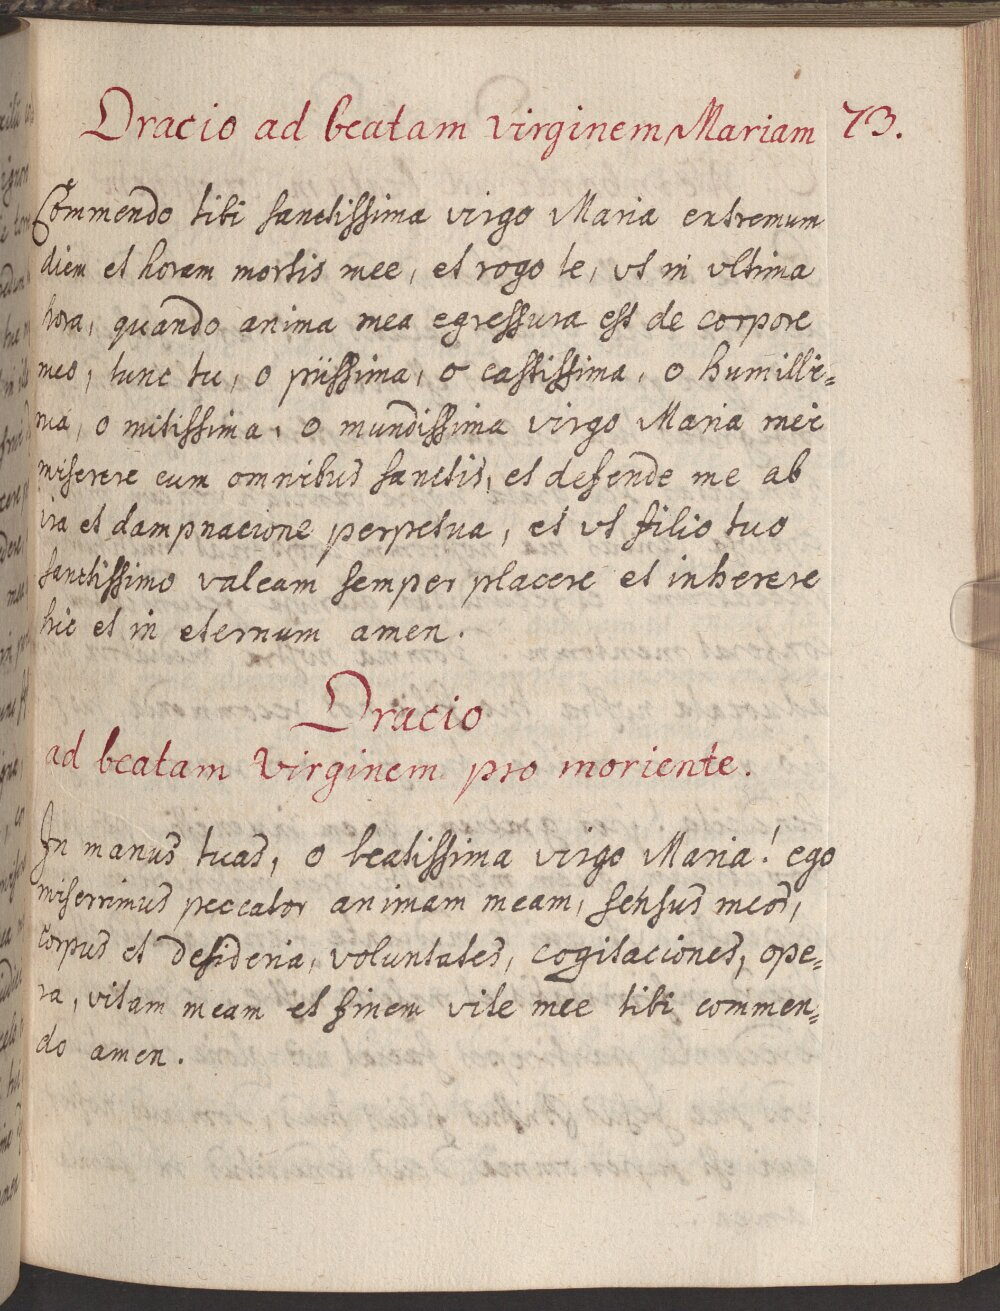 Oracio ad beatam Virginem Mariam 73.
Commendo tibi sanctissima virgo Maria extremum
diem et horam mortis mee, et rogo te, vt in vltima
hora, quando anima mea egressura est de corpore
meo, tunc tu, o piissima, o castissima, o humilli=
ma, o mitissima, o mundissima virgo Maria mei
miserere cum omnibus sanctis, et defende me ab
ira et dampnacione perpetua, et vt filio tuo
sanctissimo valeam semper placere et inherere
hic et in eternum amen.
Oracio
ad beatam Virginem pro moriente.
In manus tuas, o beatissima virgo Maria! ego
miserrimus peccator animam meam, sensus meos,
corpus et desideria, voluntates, cogitaciones, ope=
ra, vitam meam et finem vite mee tibi commen=
do amen.